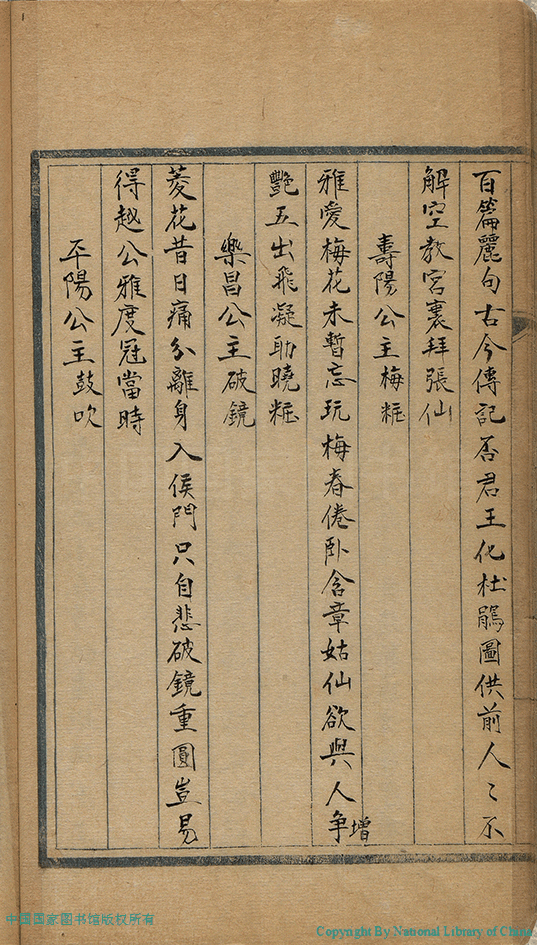 百篇麗句古今傳記否君王化杜鵑圖供前人〻不
解空教宮裏拜張仙
壽陽公主梅粧
雅愛梅花未暫忘玩梅春倦卧含章姑仙欲與人爭增
艷五出飛凝助曉粧
樂昌公主破鏡
菱花昔日痛分離身入侯門只自悲破鏡重圓豈易
得越公雅度冠當時
平陽公主鼓吹
中国国家图书馆版权所有
Copyright By National Library of China